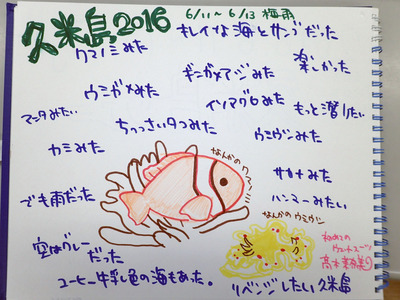 久米島2016
6/11~6/13 梅雨
キレイな海とサンゴだった
クマノミみた
楽しかった
ギンガメアジみた
ウミガメみた
イソマグロみた
もっと潜りたい
マンタみたい
ちっっさいタコみた
ウミウシみた
カミみた
なんかのクマノミ
サカナみた
でも雨だった
ハンマーみたい
なんかのウミウシ
空はグレーだった
初めての
ウェットスーツ
コーヒー牛乳色の海もあった。
リベンジしたい久米島